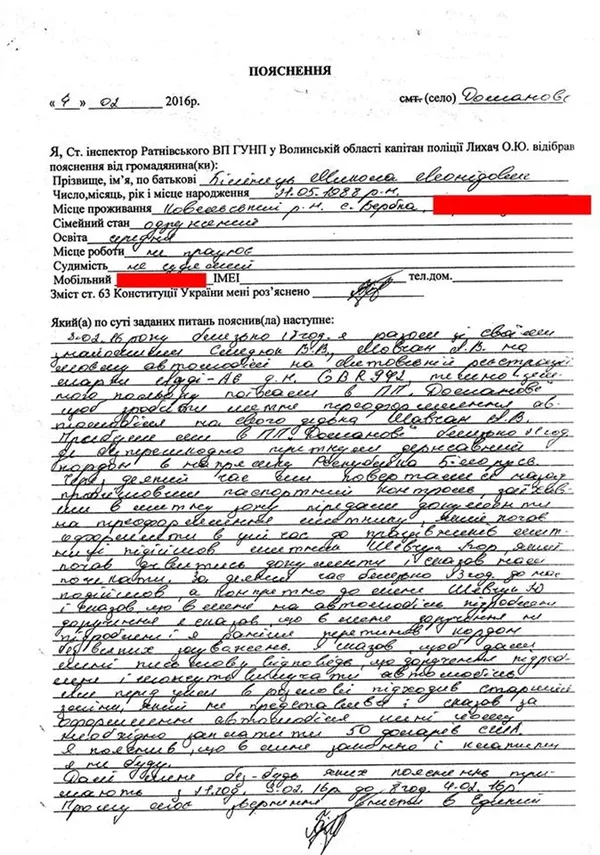 ПОЯСНЕННЯ
« 4 » 02 2016р. смт. (село) Доманове
Я, Ст. інспектор Ратнівського ВП ГУНП у Волинській області капітан поліції Лихач О.Ю. відібрав
пояснення від громадянина(ки):
Прізвище, ім'я, по батькові Микола Леонідович
Число,місяць, рік і місце народження 21.05.1988 р.н.
Місце проживання Ковельський р.н. с. Вербка,
Сімейний стан одружений
Освіта середня
Місце роботи не працює
Судимість не судимий
Мобільний IMEI тел.дом.
Зміст ст. 63 Конституції України мені роз'яснено
Який(а) по суті заданих питань пояснив(ла) наступне:
3.02.16 року близько 17 год. я разом зі своїми
знайомими В.В., Мавчан В.В. на
моєму автомобілі на литовській реєстрації
марки Ауді-А6 д.н. GBR 992,
поїхали в ПП. Доманове
щоб зробити митне переоформлення ав-
томобіля на свого Мавчан В.В.
Прибули ми в ПП Доманове близько год.
де безперешкодно перетнули державний
кордон в напрямку Республіки Білорусь.
Через деякий час ми повертались назад
пройшовши паспортний контроль, заїхав-
ши в митну зону передали документи
на переоформлення митнику, який почав
оформляти в цей час до працівників мит-
ниці підійшов митник Шевчук Ігор, який
почав дивитись документи і сказав нам
почекати. За деякий час близько 23 год. до нас
підійшов, а конкретно до мене Шевчук
і сказав, що в мене на автомобіль підроблені
доручення я сказав, що в мене доручення не
підроблені і я раніше перетинав кордон
без всяких зауважень. Я сказав, щоб дали
мені письмову відповідь, що доручення підроб-
лені і можуть вилучати автомобіль
перед цим в розмові підходив старший
зміни, який не представився і сказав за
оформлення автомобіля мені
необхідно заплатити 50 доларів США.
Я пояснив, що в мене законно і платити
я не буду.
Далі мене без будь яких пояснень три-
мають з 3.02. 16р. до 8 год. 4.02. 16р.
Прошу моє звернення внести в Єдиний